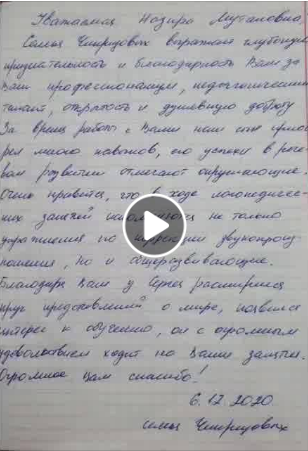 Уважаемая Назира Мутановна
Семья выражает глубокую
признательность и благодарность Вам за
Ваш профессионализм, педагогический
талант, открытость и душевную доброту
За время работы с Вами наш сын приоб
рел много навыков, его успехи в рече
вом развитии отмечают окружающие.
Очень нравится, что в ходе логопедичес-
ких занятий используются не только
упражнения по коррекции звукопроиз
ношения, но и общеразвивающие.
Благодаря Вам у расширился
круг представлений о мире, появился
интерес к обучению, он с огромным
удовольствием ходит на Ваши занятия.
Огромное Вам спасибо!
6.12.2020
семья